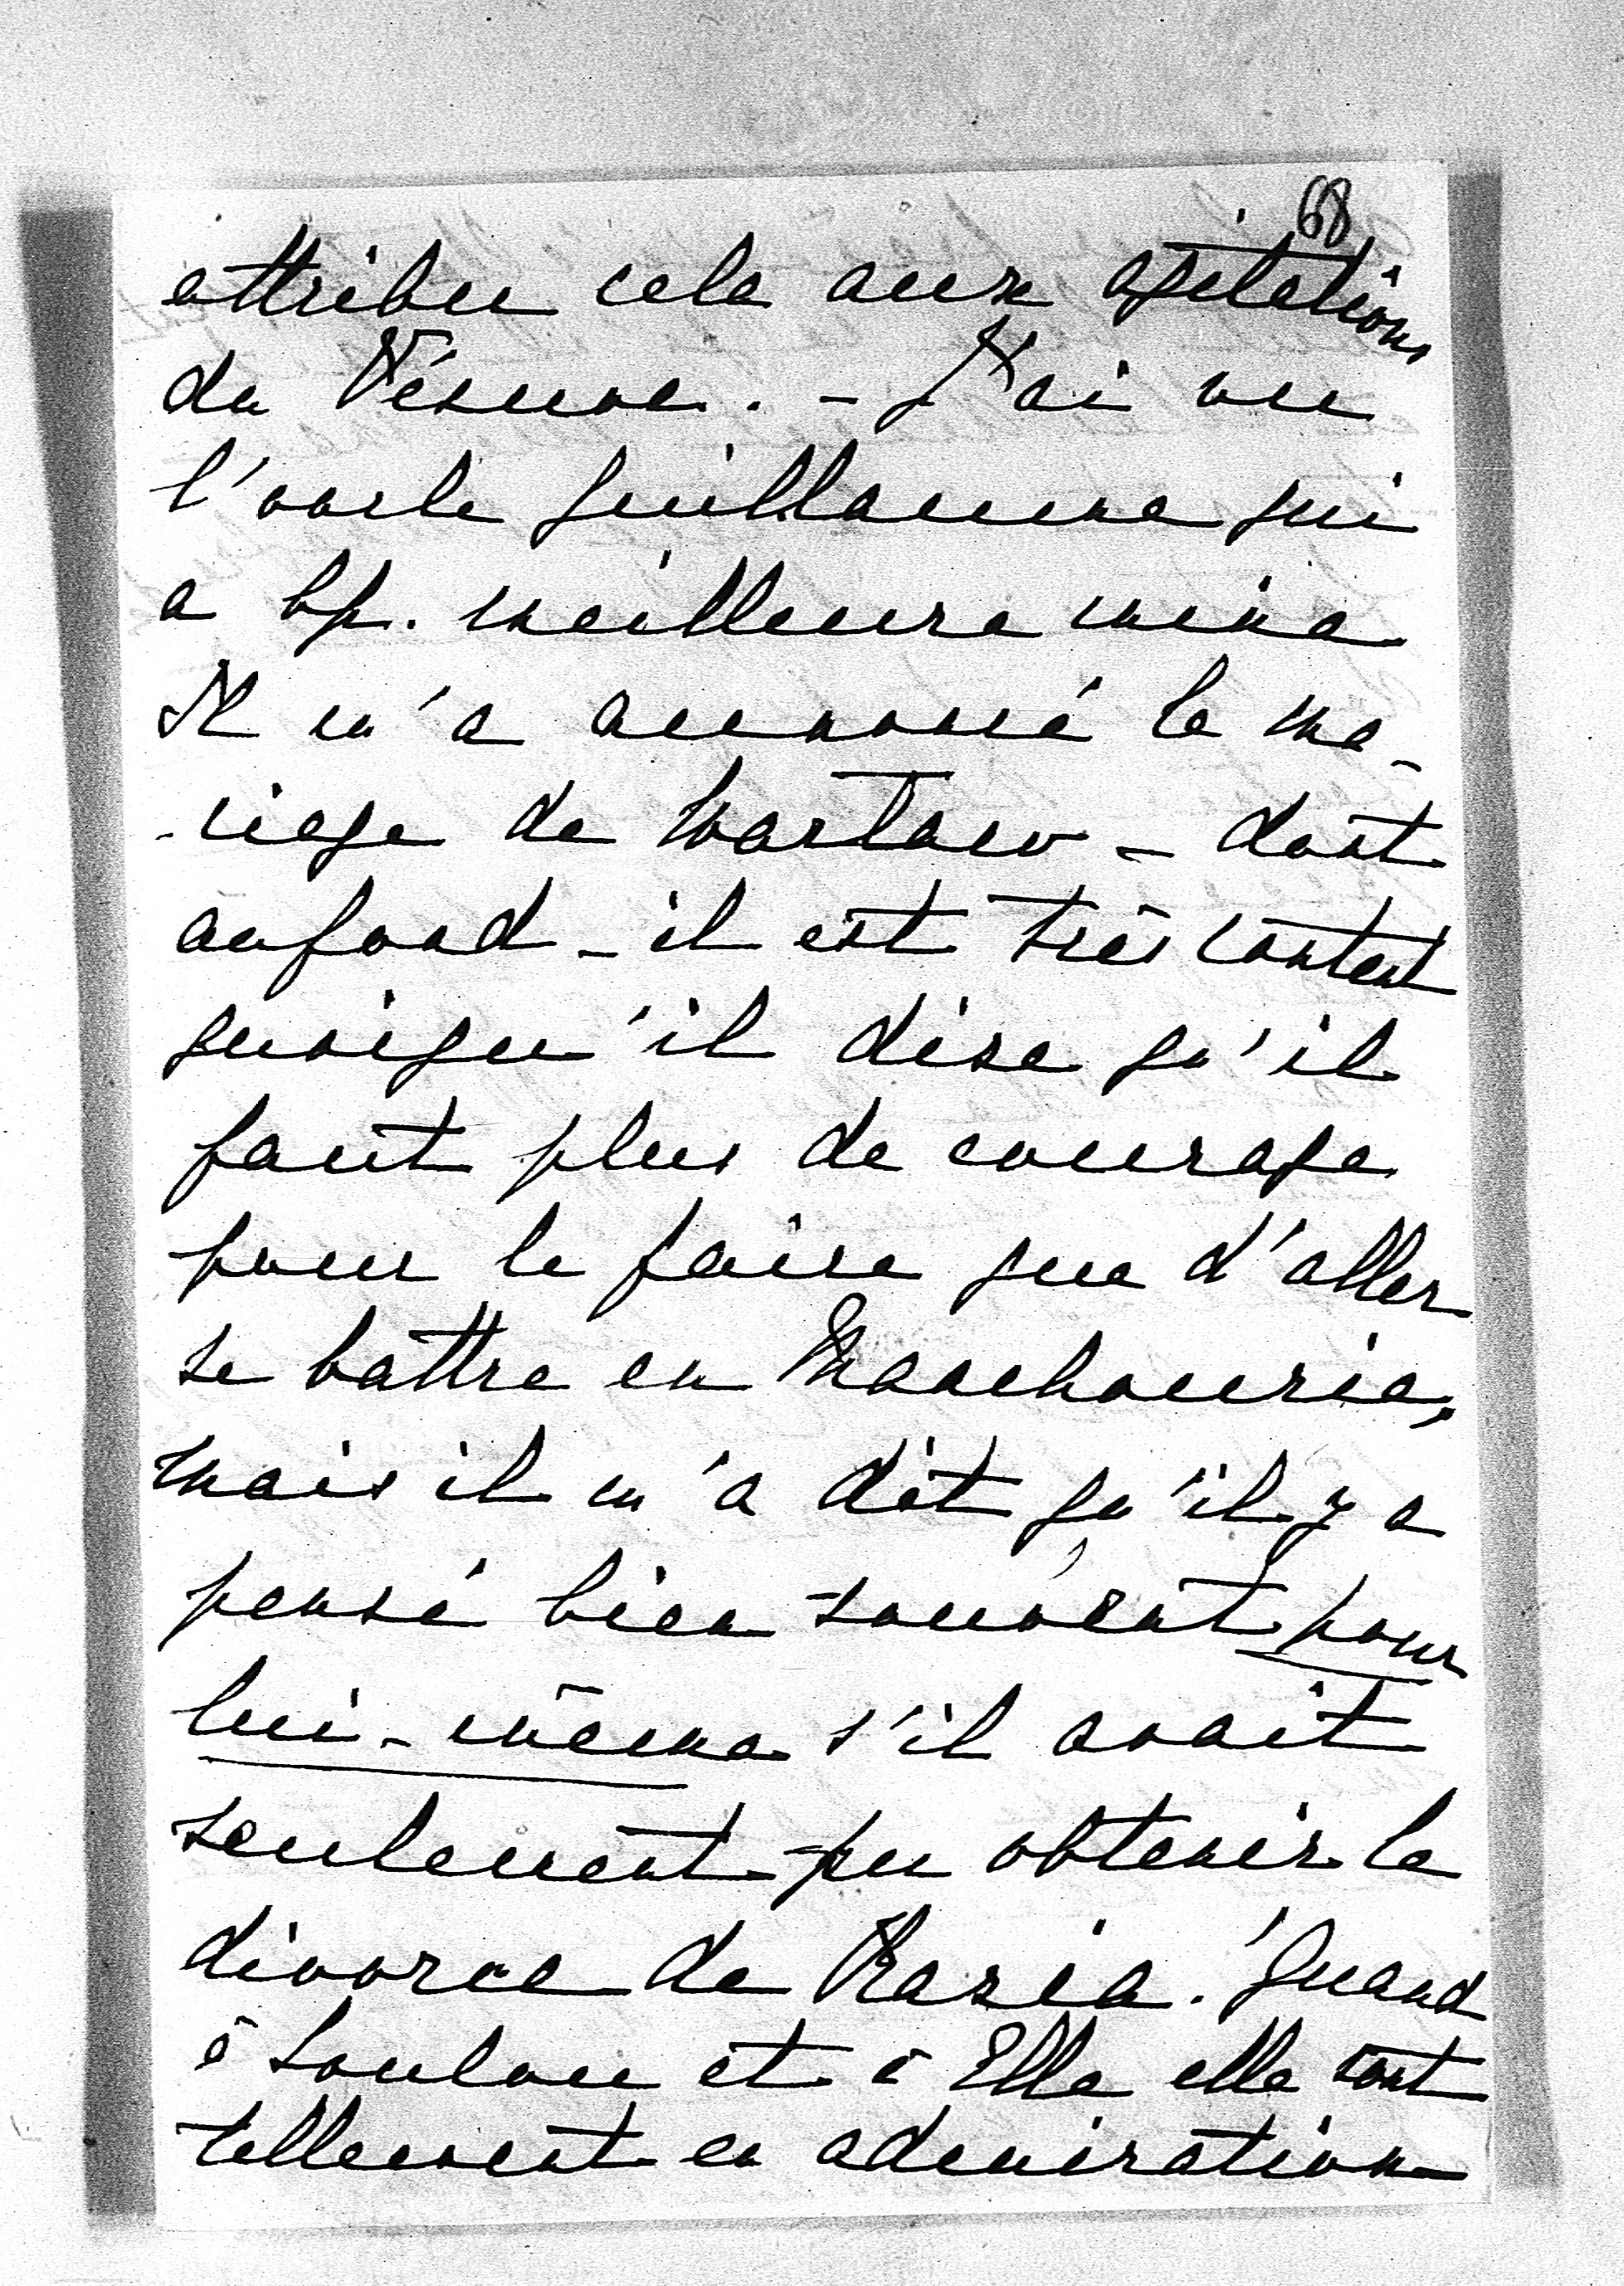 68
attribue cela aux agitations
du Vésuve. - J'ai vu
l'oncle Guillaume qui
a bp. meilleure mine
Il m'a annoncé le ma-
-riage de - dont
au fond - il est très content
quoiqu'il dise qu'il
faut plus de courage
pour le faire que d'aller
se battre en Manchourie,
mais il m'a dit qu'il y a
pensé bien souvent pour
lui-même s'il avait
seulement pu obtenir le
divorce de Kasia. Quand
à Loulou et à Ella elle sont
tellement en admiration